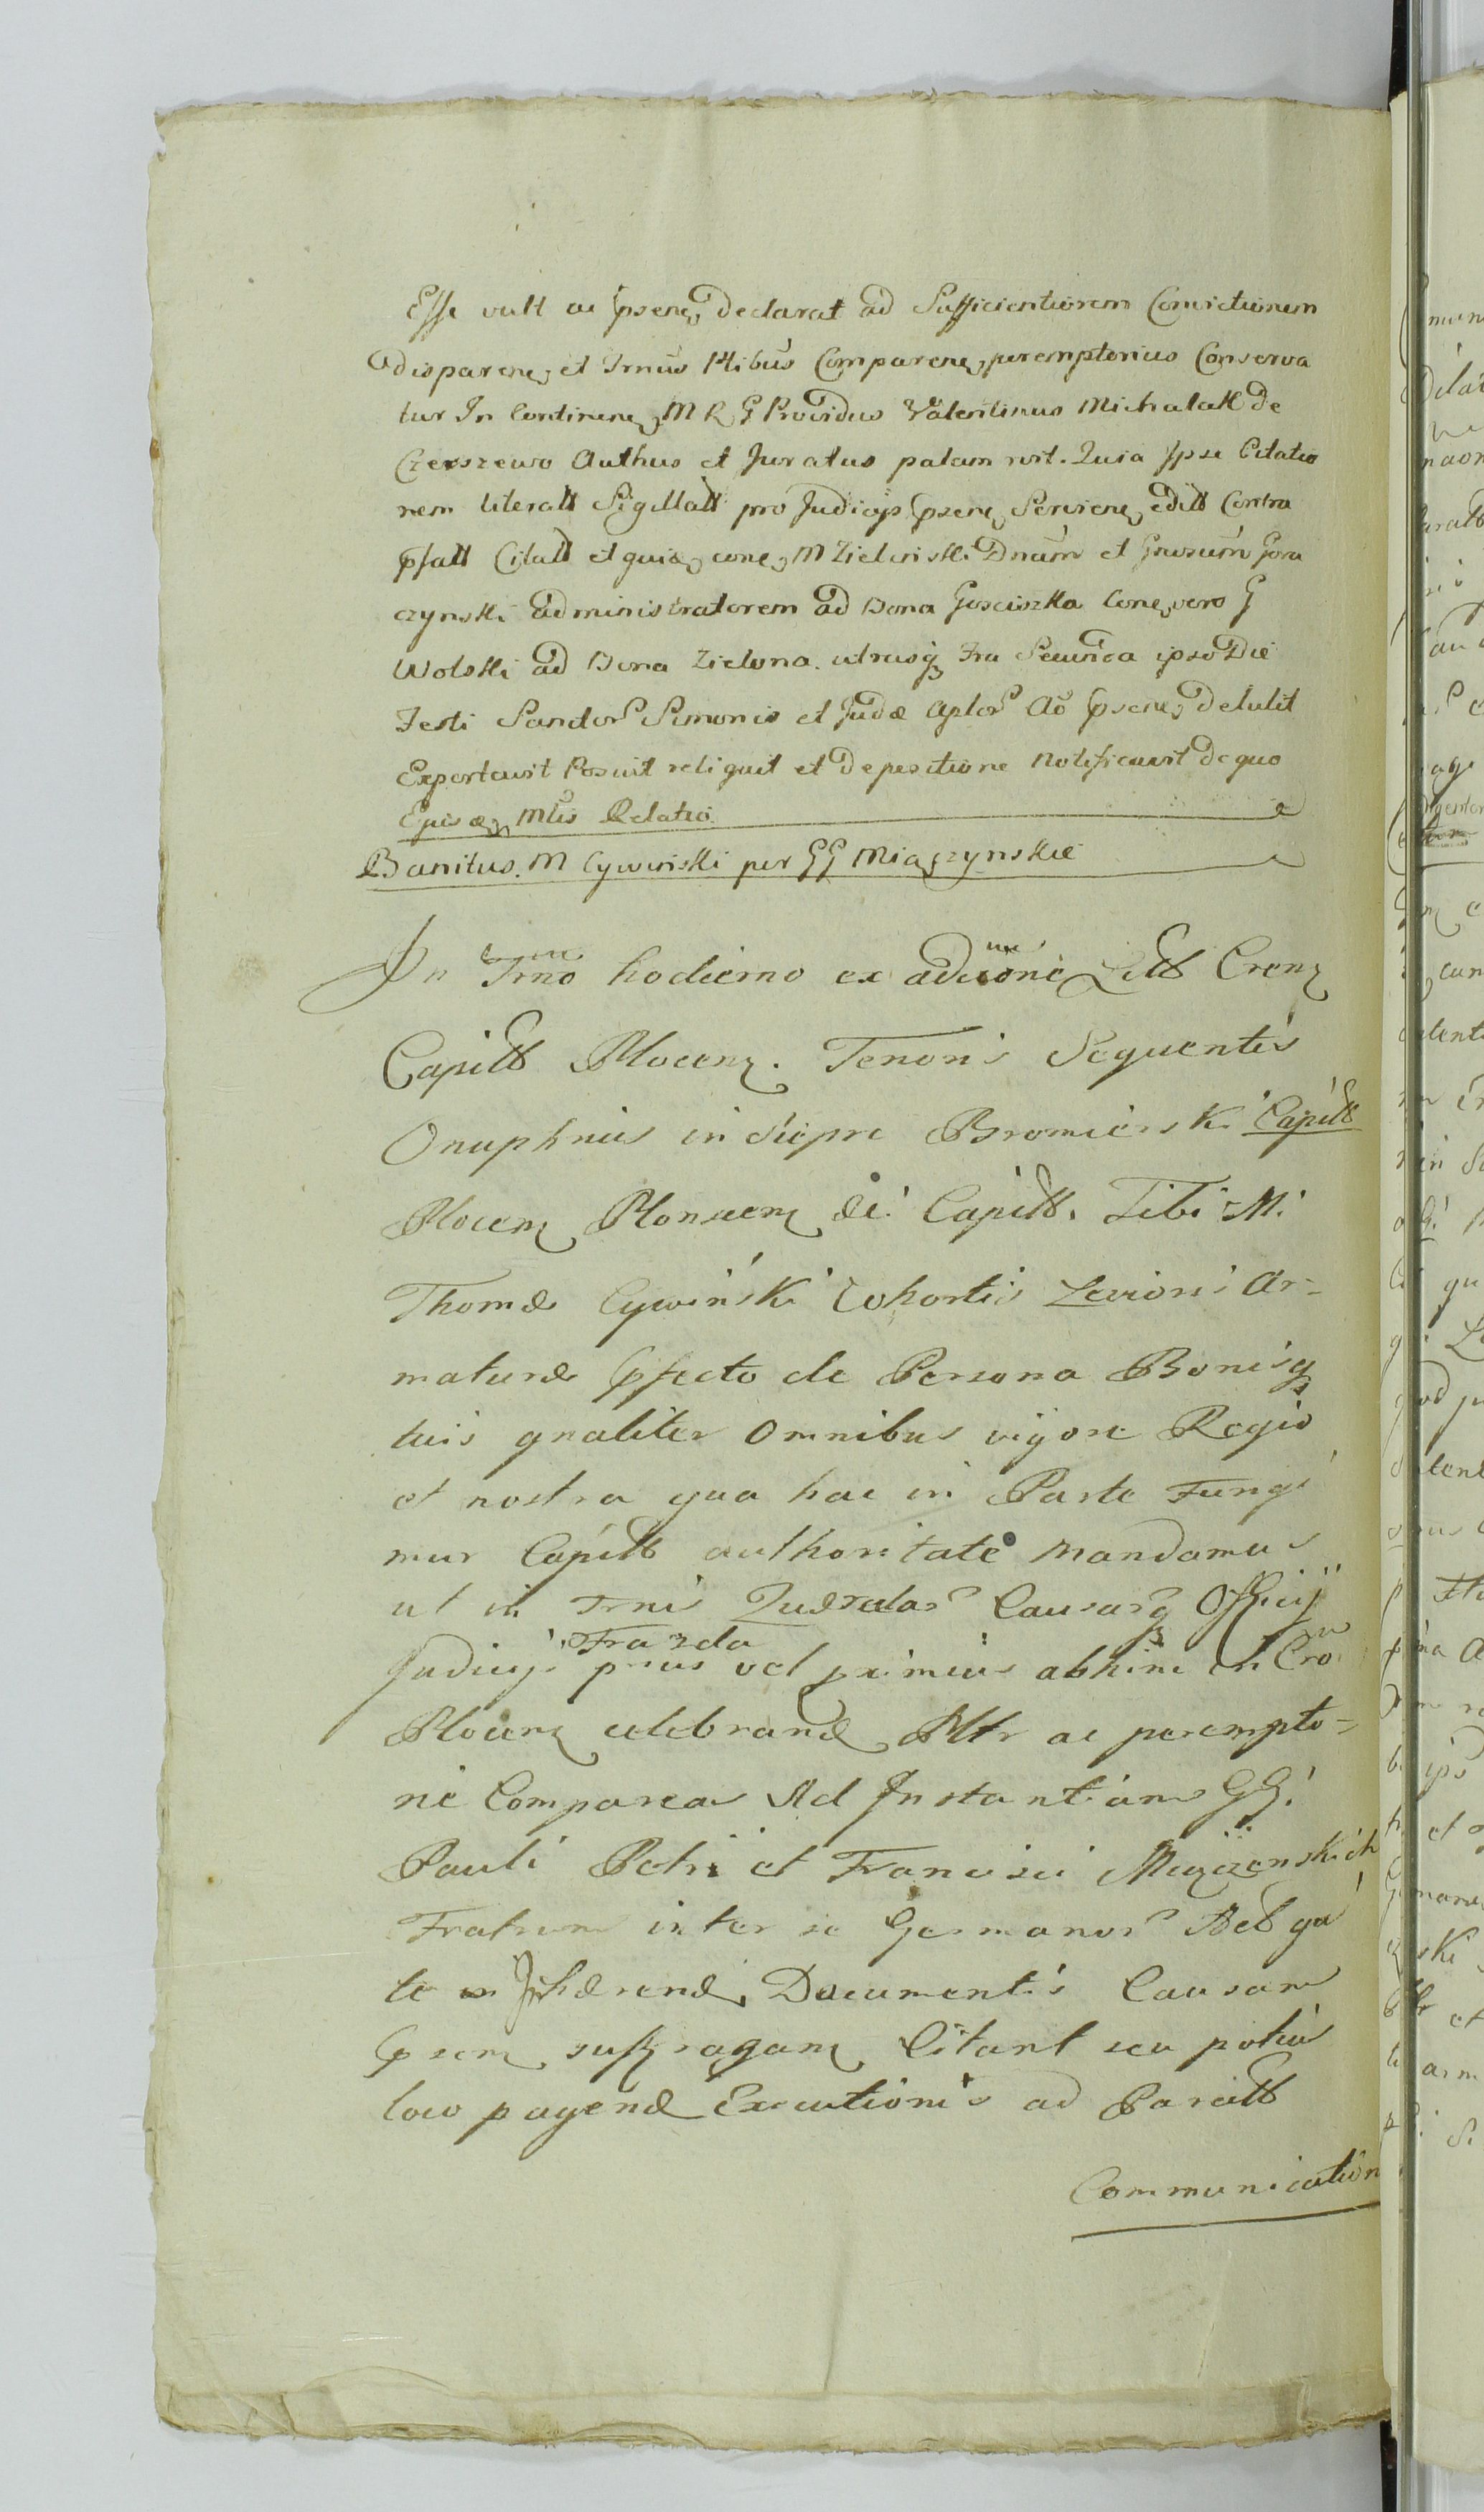 Esse vult ac pseng Declarat ad Sufficientiorem Convictionem
Adispareng et Trmus Htibus Compareng peremptorius Conserva
tur In Contineng M R G Providus Valentinus Michalak De
Czerszewo Authus et Juratus palam rvit. Quia Ipse Citatio
nem literatt Sigillatt pro Judicijs pseng Servieng editt Contra
psatt Citatt et quidg cong M Zielinski Dnum et Gnosum Gora
czynski administratorem ad Bona Gosciszka Cong vero G
Wolski ad Bona Zielona utrusq Fra Secunda ipso Die
Festi Sandor Simonis et Judæ Aplor Ao pseng Detulit
Exportavit Posuit reliquit et Depositione Notificavit De quo
Ejus Mtis Relatio
Banitus M Cywinski per GG Miączynskie
In Trmo hodierno ex aducone Litt Creng
Capitt Ploceng. Tenoris Sequentis
Onuphrius in Siepre Bromierski Capitt
Ploceng Plonsceng &c. Capitt. Tibi M.
Thomæ Cywiński Cohortis Levioris Ar=
maturæ psecto de Persona Bonisq
tuis gnaliter Omnibus vigore Regio
et nostra qua hac in Parte Fungi
mur Capitt authoritate Mandamus
ut in Trnis Querelar Causarq Officij
Fra 2da
Judicij prius vel primius abhinc in Cro
Ploceng celebrand Pltr ac perempto=
rie Compareas Ad Instantiam GG.
Pauli Petri et Francisci Miączenskich
Fratrum inter se Germanor
te Inhærend Documentis Causam
pseng suffragang Citant seu potius
loco pagend Executionis ad Paritt
Communication